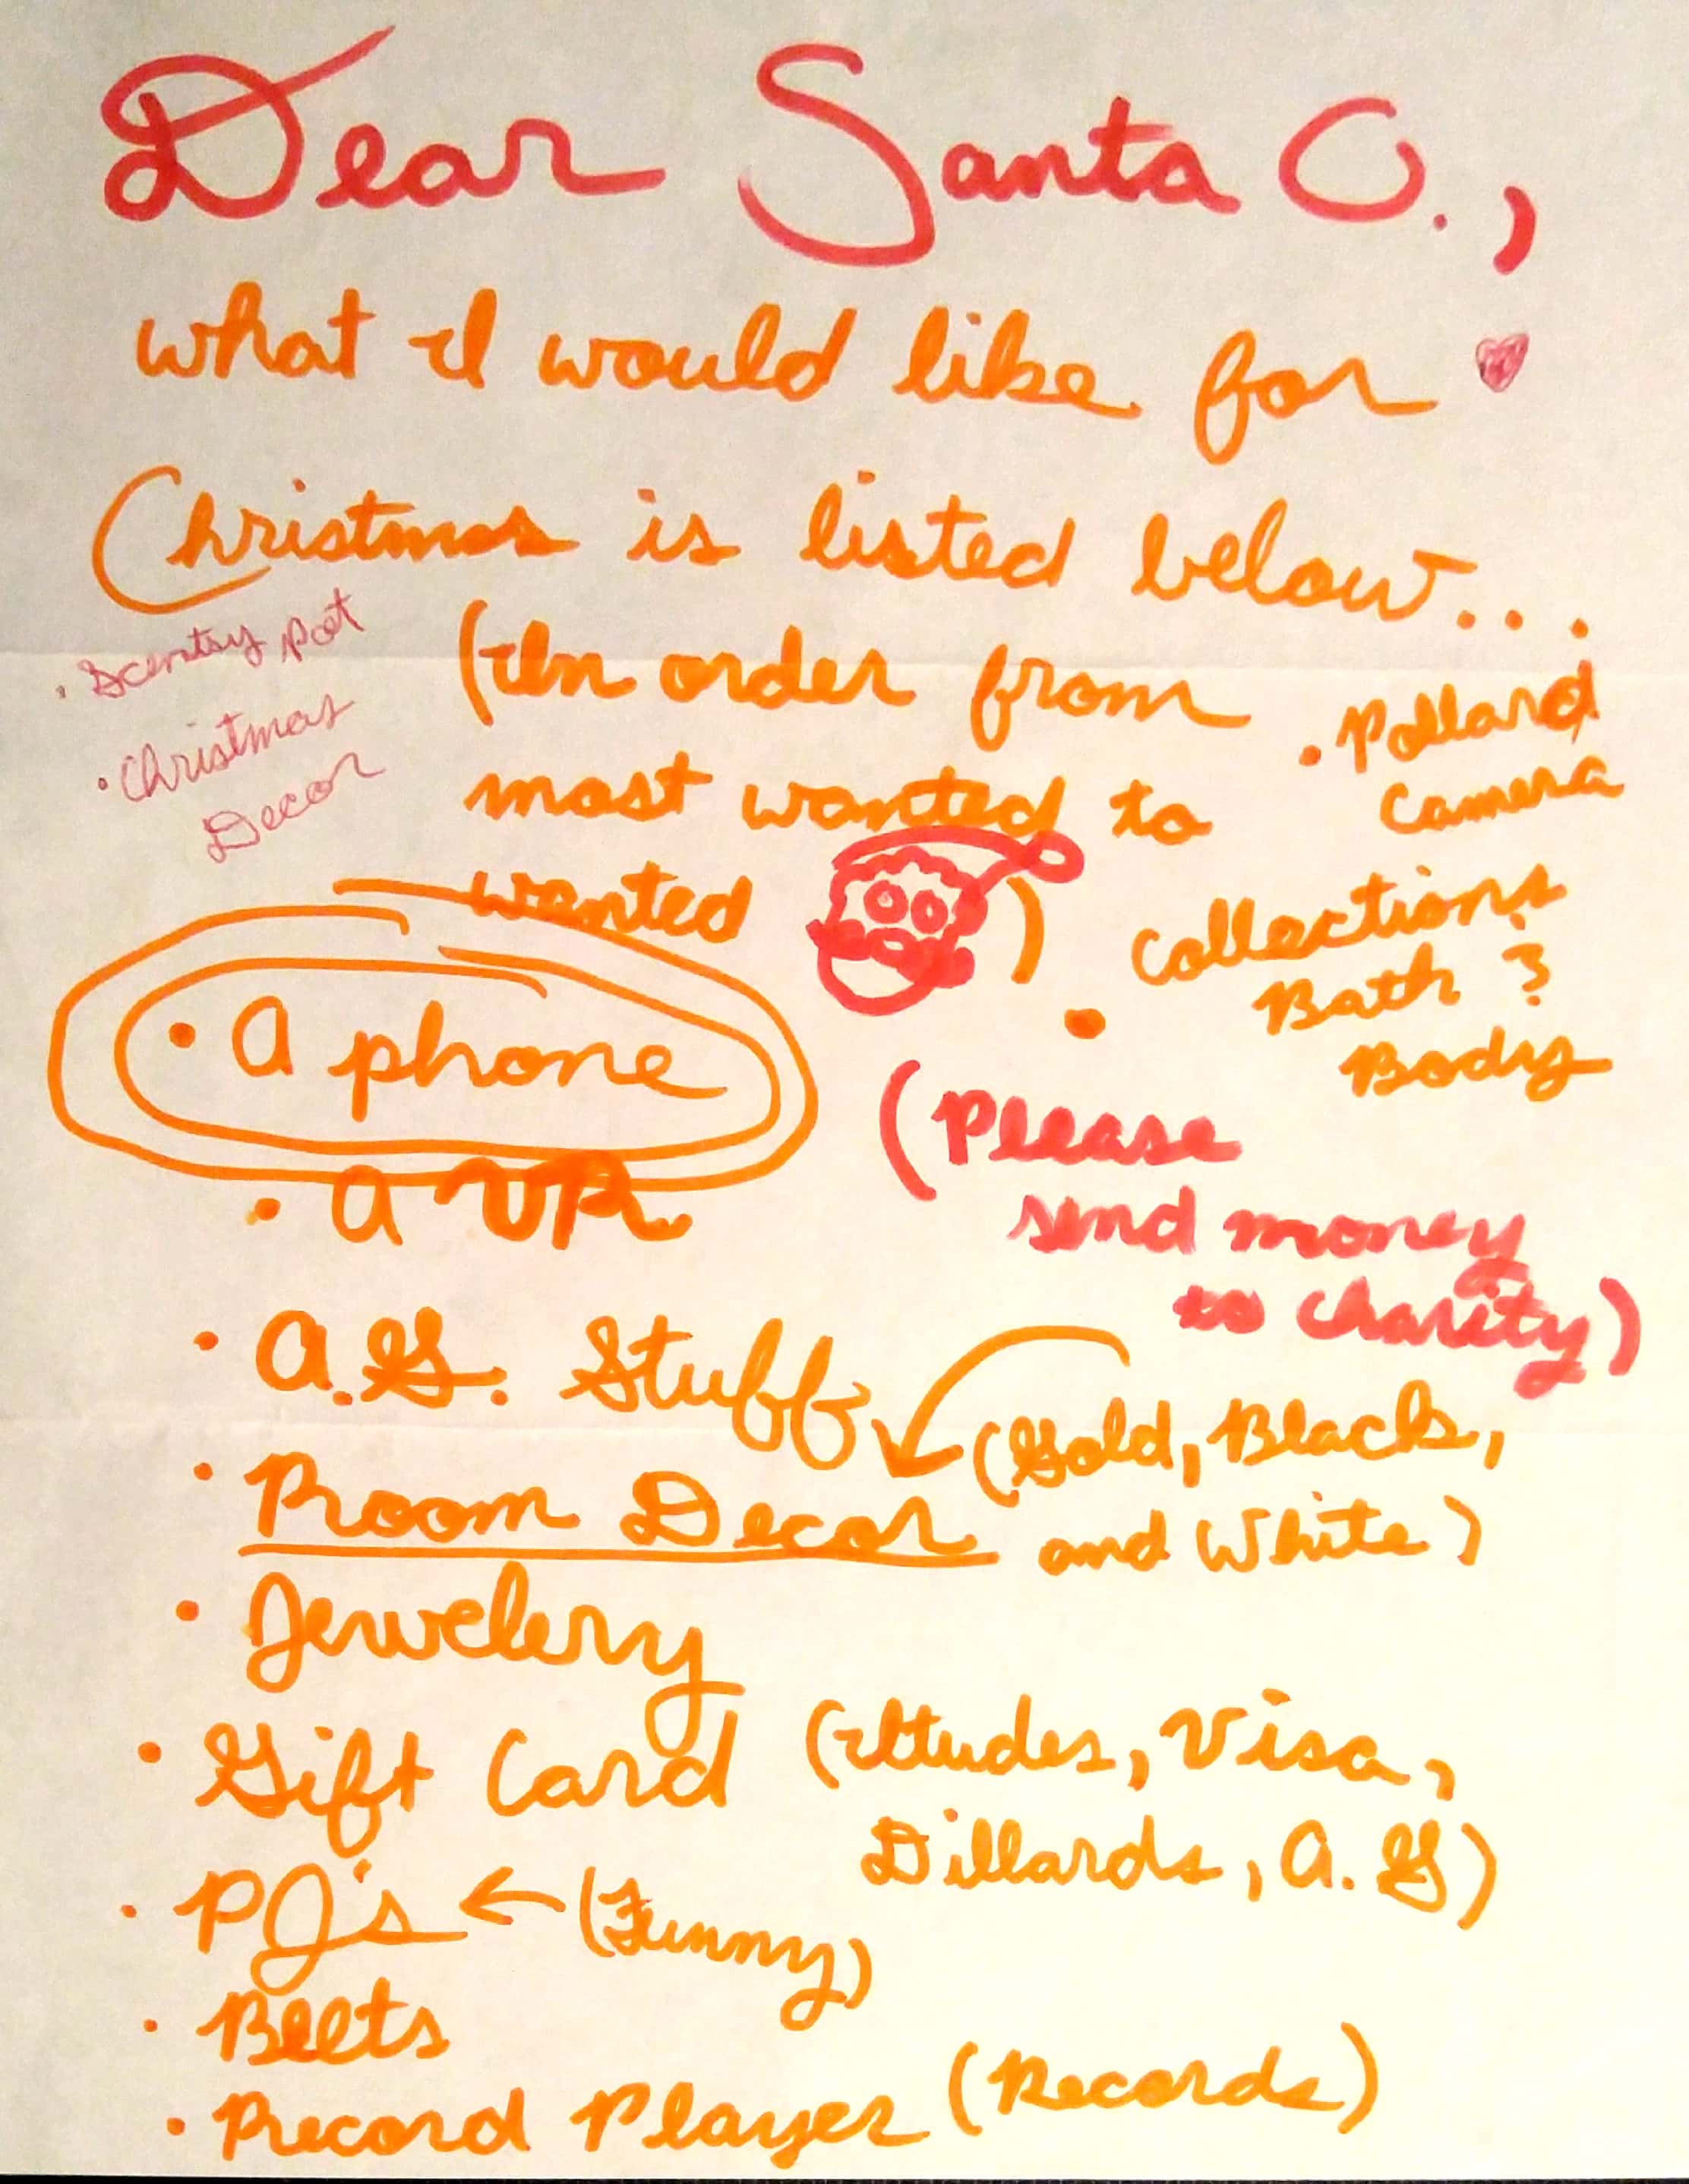 Dear Santa C.,
what I would like for
Christmas is listed below...
(In order from
most wanted to
wanted )
• Scentsy pot
• Christmas
Decor
• Pollard
Camera
• Collections
Bath &
Body
• A phone
• A VR
(Please
send money
to charity)
• A.G. Stuff
• Room Decor (Gold, Black,
and White)
• Jewelery
• Gift Card (Ittudes, Visa,
Dillards, A.G)
• PJ's ← (Funny)
• Belts
• Record Player (Records)